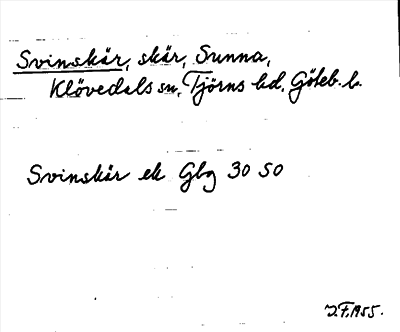 Svinskär, skär, Sunna,
Klövedals sn, Tjörns hd, Göteb. l.
Svinskär ek Gbg 30 50
1955.